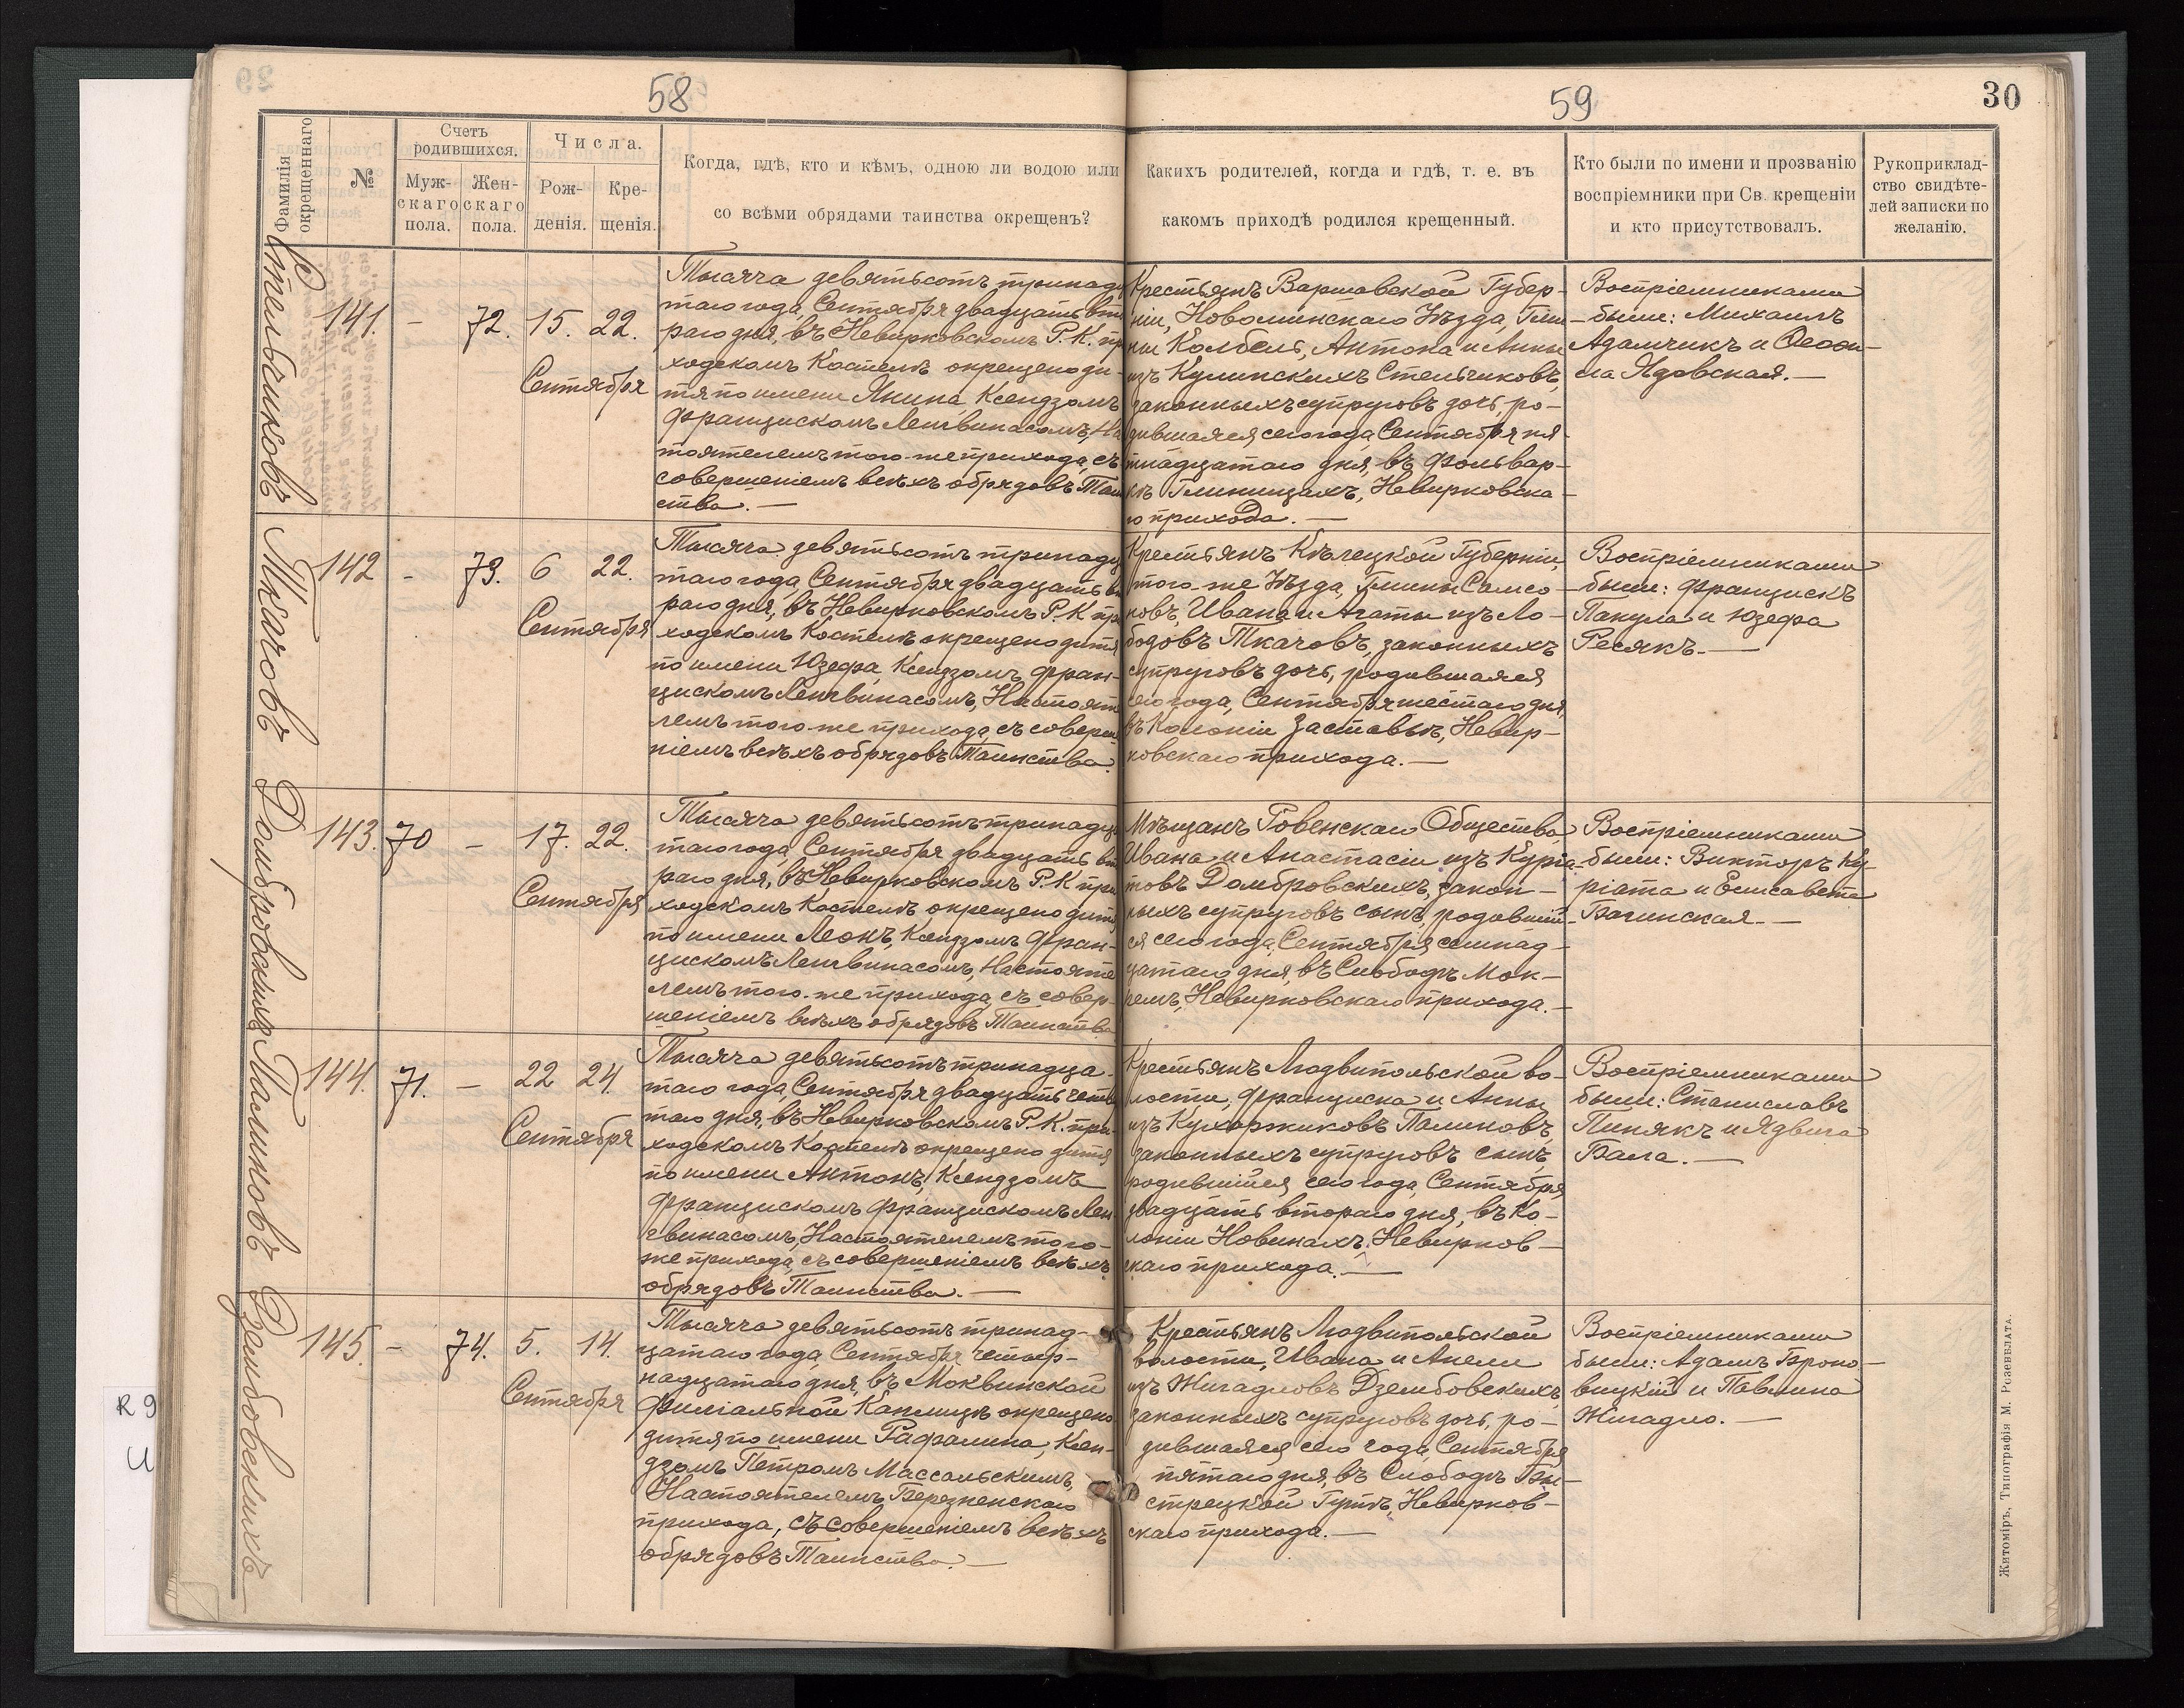 58
59
30
Фамилія окрещеннаго
№
Счетъ родившихся.
Муж-
скаго
пола.
Жен-
скаго
пола.
Числа.
Рож-
денія.
Кре-
щенія.
Когда, гдѣ, кто и кѣмъ, одною ли водою или
со всѣми обрядами таинства окрещенъ?
Какихъ родителей, когда и гдѣ, т. е. въ
какомъ приходѣ родился крещенный.
Кто были по имени и прозванію
воспріемники при Св. крещеніи
и кто присутствовалъ.
Рукоприклад-
ство свидѣте-
лей записки по
желанію.
141. - 72. 15. 22.
Сентября
Тысяча девятьсотъ тринадца
таго года, Сентября двадцать вто
раго дня, въ Невирковскомъ Р. К. при
ходскомъ Костелѣ окрещено ди-
тя по имени Янина, Ксендзомъ
Францискомъ Ленгвинасомъ, Нас
тоятелемъ того-же прихода, съ
совершеніемъ всѣхъ обрядовъ Таин
ства. —
Крестьянъ Варшавской Губер-
ніи, Новоминскаго Уѣзда, Гми-
ны Колбель, Антона и Анны
изъ Кулинскихъ
законныхъ супруговъ дочь, ро-
дившаяся сего года, Сентября пя-
тнадцатаго дня, въ Фольвар-
кѣ Глинищахъ, Невирковска-
го прихода. —
Воспріемниками
были: Михаилъ
Адамчикъ и
Ядовская. —
Ткачовъ
142 - 73. 6 22.
Сентября
Тысяча девятьсотъ тринадца
таго года, Сентября двадцать вто
раго дня, въ Невирковскомъ Р. К. при
ходскомъ Костелѣ окрещено дитя
по имени Юзефа, Ксендзомъ Фран-
цискомъ Ленгвинасомъ, Настояте
лемъ того-же прихода, съ соверше
ніемъ всѣхъ обрядовъ Таинства.
Крестьянъ Кѣлецкой Губерніи,
того-же Уѣзда, Гмины Самсо-
новъ, Ивана и Агаты изъ Ло-
бодовъ Ткачовъ, законныхъ
супруговъ дочь, родившаяся
сего года, Сентября шестаго дня,
въ Колоніи Заставье, Невир-
ковскаго прихода. —
Воспріемниками
были: Францискъ
Пакула и Юзефа
Ресякъ. —
Домбровскихъ
143. 70 - 17. 22.
Сентября
Тысяча девятьсотъ тринадца
таго года, Сентября двадцать вто
раго дня, въ Невирковскомъ Р. К при
ходскомъ Костелѣ окрещено дитя
по имени Леонъ, Ксендзомъ Фран-
цискомъ Ленгвинасомъ, Настояте
лемъ того-же прихода, съ совер-
шеніемъ всѣхъ обрядовъ Таинства
Мѣщанъ Ровенскаго Общества,
Ивана и Анастасіи изъ Курга-
товъ Домбровскихъ, закон-
ныхъ супруговъ сынъ, родившій-
ся сего года, Сентября семнад-
цатаго дня, въ Слободѣ Мок-
ремъ, Невирковскаго прихода. —
Воспріемниками
были: Викторъ Ку-
ріата и Елисавета
Багинская. —
Палиновъ
144. 71. - 22 24.
Сентября
Тысяча девятьсотъ тринадца-
таго года, Сентября двадцать четвер
таго дня, въ Невирковскомъ Р. К. при-
ходскомъ Костелѣ окрещено дитя
по имени Антонъ, Ксендзомъ
Францискомъ Францискомъ Лен-
гвинасомъ, Настоятелемъ того-
же прихода, съ совершеніемъ всѣхъ
обрядовъ Таинства. —
Крестьянъ Людвипольской во-
лости, Франциска и Анны
изъ Кухаржиковъ Палиновъ,
законныхъ супруговъ сынъ,
родившійся сего года, Сентября
двадцать втораго дня, въ Ко-
лоніи Новинахъ, Невирков-
скаго прихода. —
Воспріемниками
были: Станиславъ
Пинякъ и Ядвига
Бала. —
Дзембовскихъ
145. - 74. 5. 14.
Сентября
Тысяча девятьсотъ тринад-
цатаго года, Сентября четыр-
надцатаго дня, въ Моквинской
Филіальной Каплицѣ окрещено
дитя по имени Рафалина, Ксен-
дзомъ Петромъ Массальскимъ,
Настоятелемъ Березненскаго
прихода, съ совершеніемъ всѣхъ
обрядовъ Таинства. —
Крестьянъ Людвипольской
волости, Ивана и Анели
изъ Жигадловъ Дзембовскихъ,
законныхъ супруговъ дочь, ро-
дившаяся сего года, Сентября
пятаго дня, въ Слободѣ Бы-
стрецкой Гутѣ, Невирков-
скаго прихода. —
Воспріемниками
были: Адамъ Броно-
вицкій и Павлина
Жигадло. —
Житоміръ, Типографія М. Розенблата.
R 9